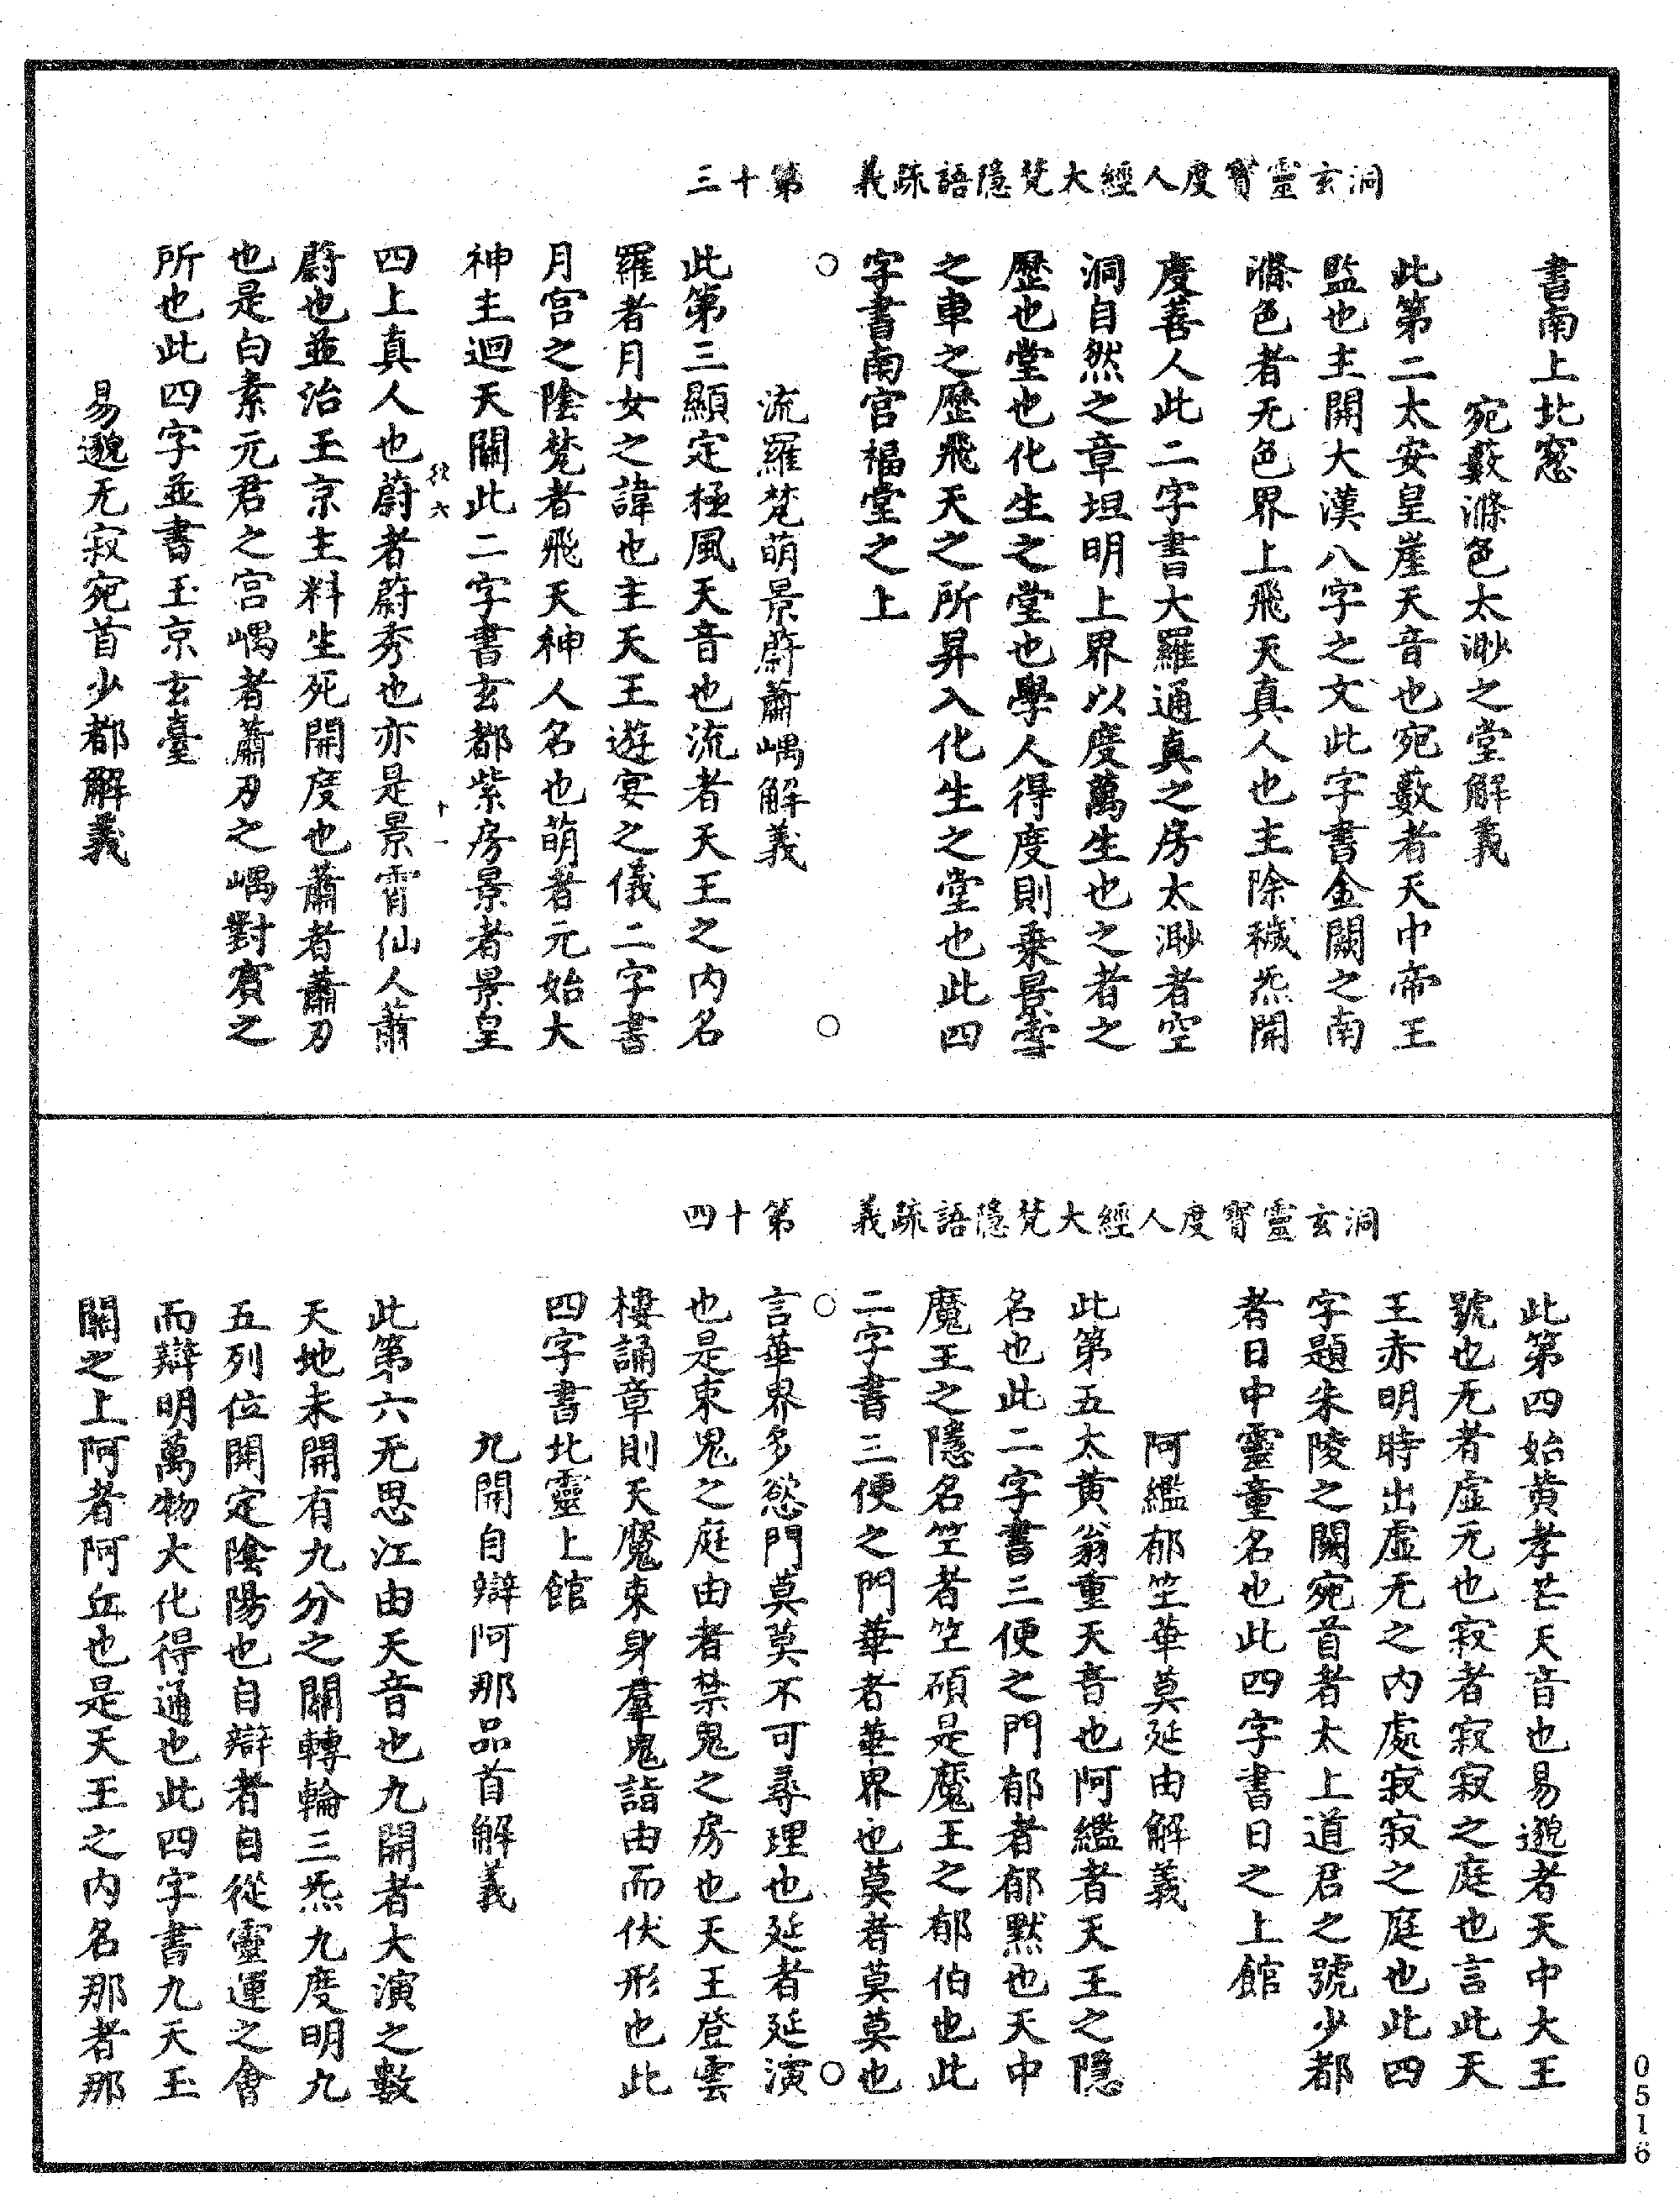 洞玄靈寶度人經大梵隱語疏義　第十三
書南上北窓
宛藪滌色太渺之堂解義
此第二太安皇崖天音也宛藪者天中帝王
監也主開大漢八字之文此字書金闕之南
滌色者无色界上飛天真人也主除穢炁開
度善人此二字書大羅通真之房太渺者空
洞自然之章坦明上界以度萬生也之者之
歷也堂也化生之堂也學人得度則乗景雲
之車之歷飛天之所昇入化生之堂也此四
字書南宮福堂之上
流羅梵萌景蔚蕭嵎解義
此第三顯定極風天音也流者天王之内名
羅者月女之諱也主天王遊宴之儀二字書
月宮之陰梵者飛天神人名也萌者元始大
神主迴天關此二字書玄都紫房景者景皇
四上真人也蔚者蔚秀也亦是景霄仙人蕭
蔚也並治玉京主料生死開度也蕭者蕭刀
也是白素元君之宮嵎者蕭刀之嵎對賓之
所也此四字並書玉京玄臺
易邈无寂宛首少都解義
洞玄靈寶度人經大梵隱語疏義　第十四
此第四始黄孝芒天音也易邈者天中大王
號也无者虚元也寂者寂寂之庭也言此天
王赤明時出虚无之内處寂寂之庭也此四
字題朱陵之闕宛首者太上道君之號少都
者日中靈童名也此四字書日之上館
阿鑑郁竺華莫延由解義
此第五太黄翁重天音也阿鑑者天王之隱
名也此二字書三便之門郁者郁黙也天中
魔王之隱名竺者竺碩是魔王之郁伯也此
二字書三便之門華者華界也莫者莫莫也
言華界多慾門莫莫不可尋理也延者延演
也是束鬼之庭由者禁鬼之房也天王登雲
樓誦章則天魔束身羣鬼詣由而伏形也此
四字書北靈上館
九開自辯阿那品首解義
此第六无思江由天音也九開者大演之數
天地未開有九分之關轉輪三炁九度明九
五列位開定陰陽也自辯者自從靈運之會
而辯明萬物大化得通也此四字書九天玉
關之上阿者阿丘也是天王之内名那者那
0516